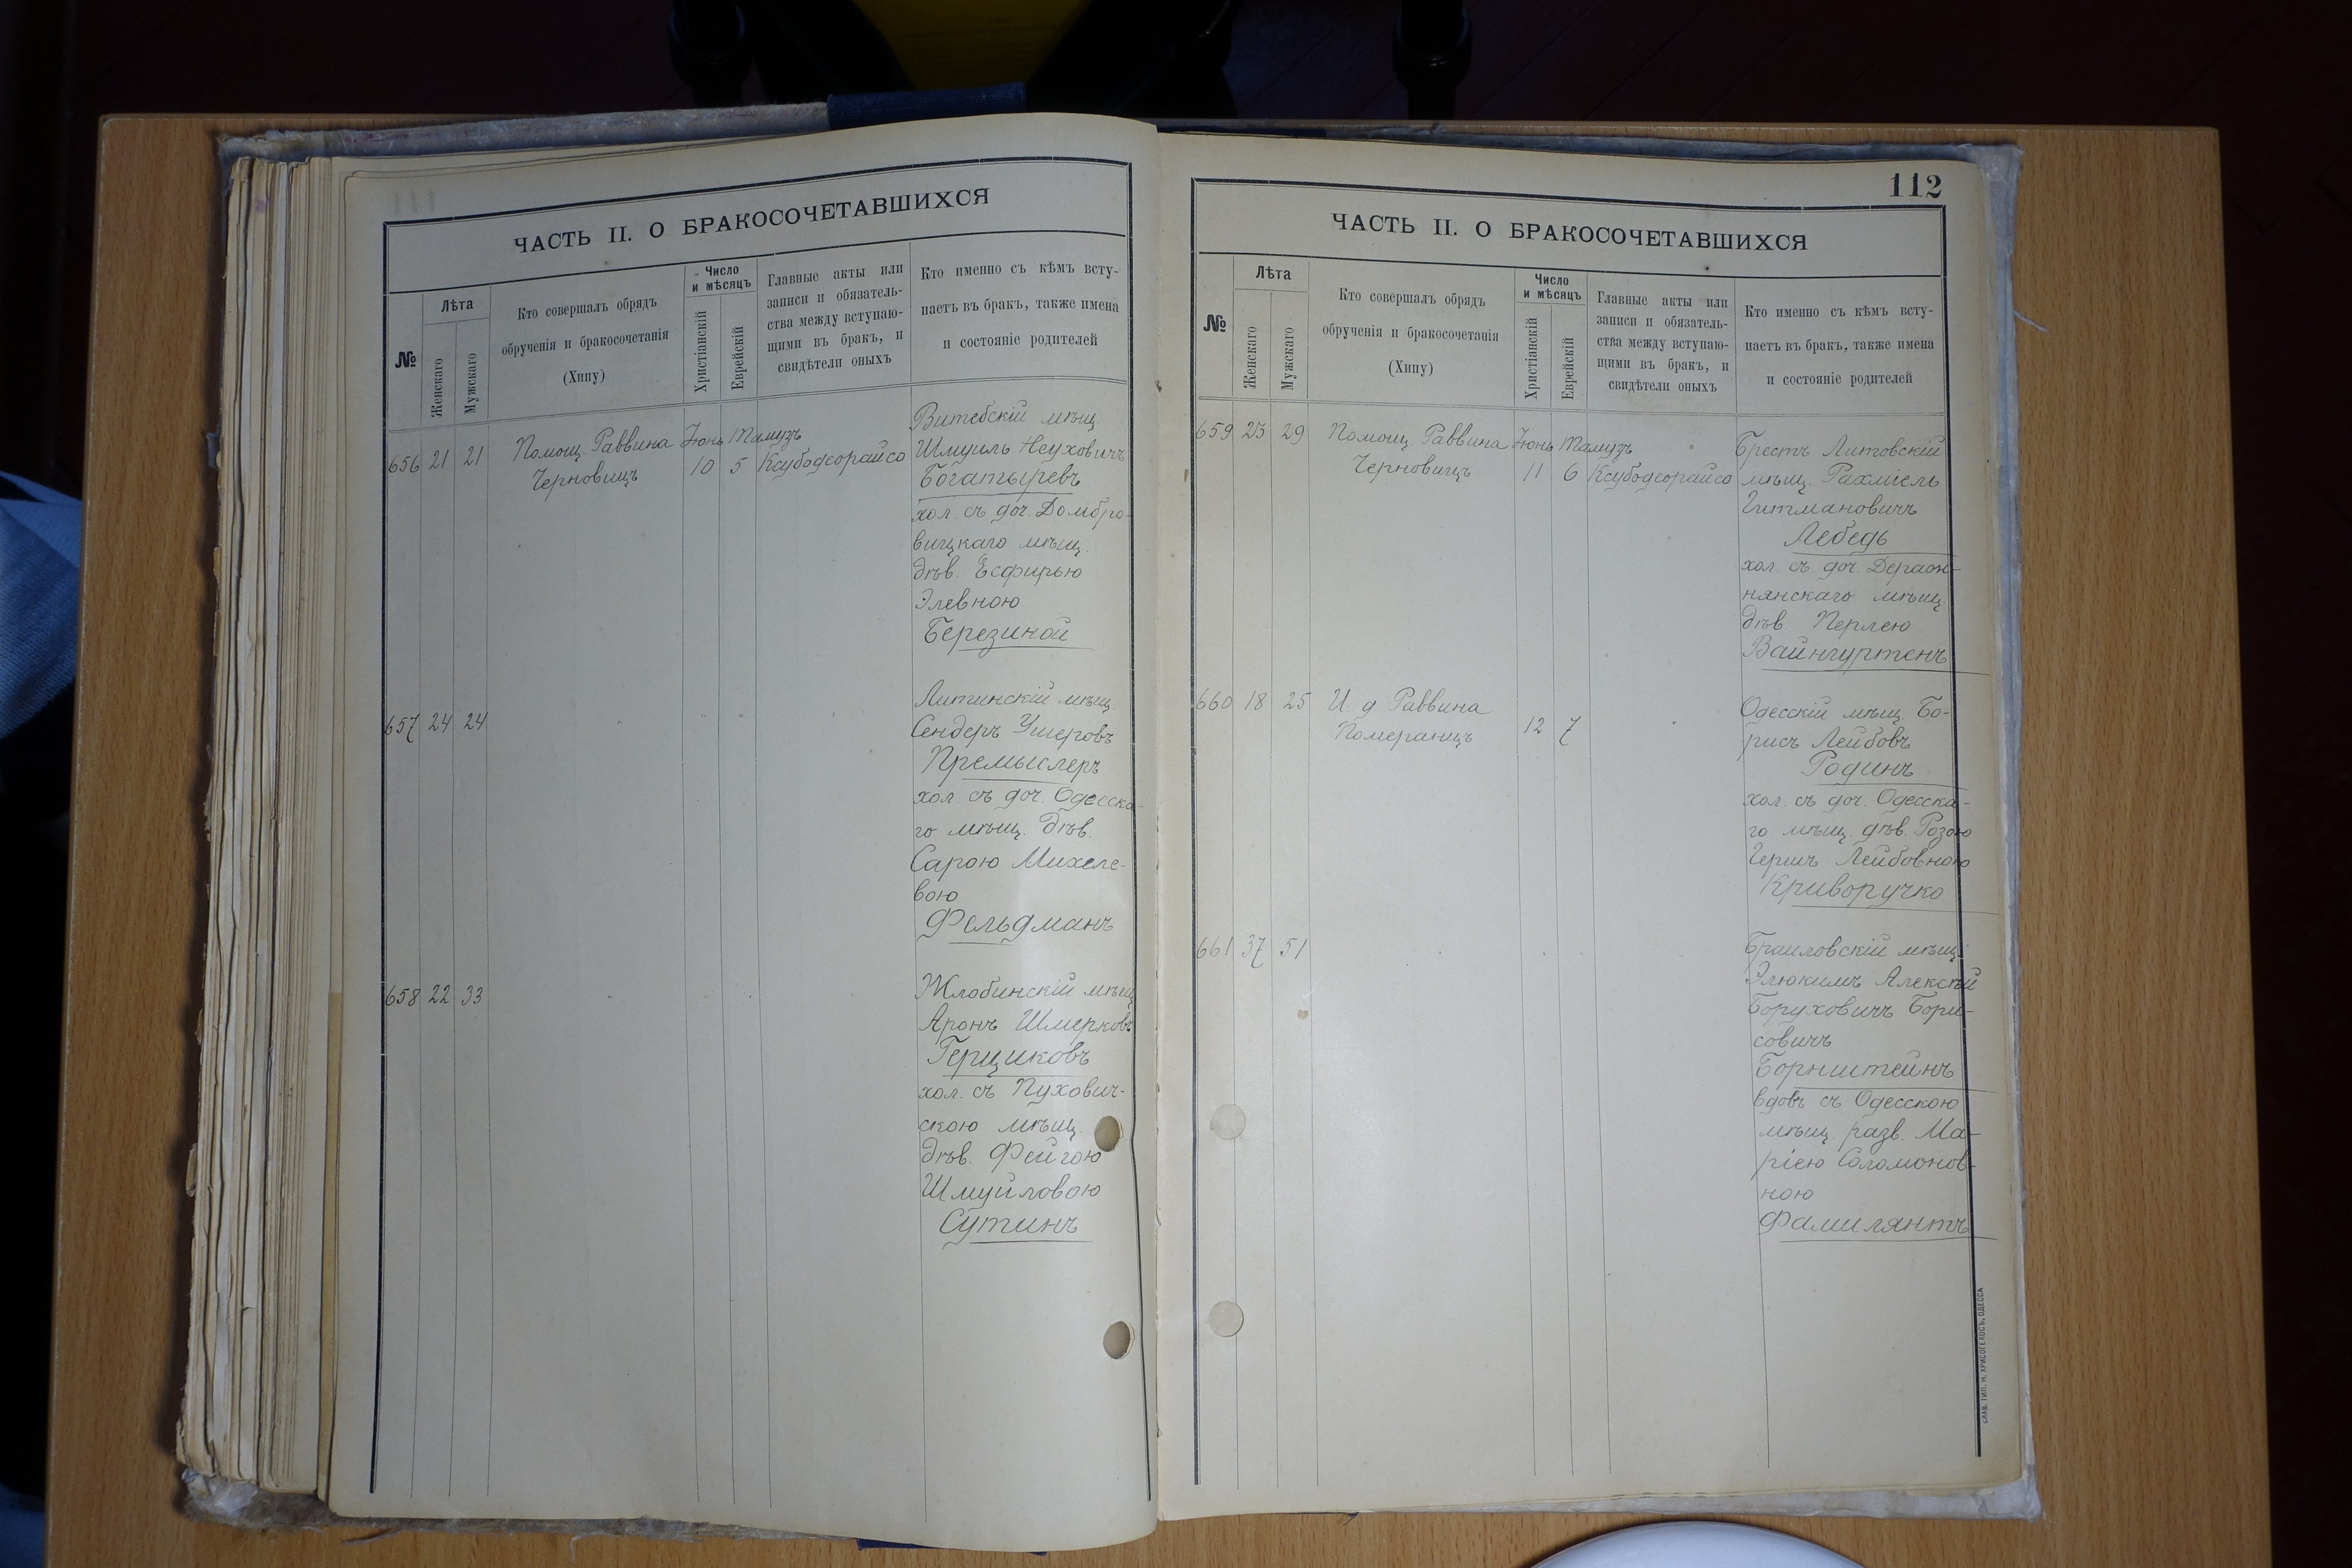 ЧАСТЬ II. О БРАКОСОЧЕТАВШИХСЯ
№
Лѣта
Женскаго
Мужскаго
Кто совершалъ обрядъ
обрученія и бракосочетанія
(Хипу)
Число
и мѣсяцъ
Христіанскій
Еврейскій
Главные акты или
записи и обязатель-
ства между вступаю-
щими въ бракъ, и
свидѣтели оныхъ
Кто именно съ кѣмъ всту-
паетъ въ бракъ, также имена
и состояніе родителей
656 21 21
Помощ. Раввина
Черновицъ
Іюнь Тамузъ
10 5 Ксубодеорайсо
Витебскій мѣщ.
Шмуиль Неуховичъ
Богатыревъ
хол. съ доч. Домбро-
вицкаго мѣщ.
дѣв. Есфирью
Элевною
Березиной
657 24 24
" " "
Литинскій мѣщ.
Сендеръ Ушеровъ
Премыслеръ
хол. съ доч. Одесска-
го мѣщ. дѣв.
Сарою Михеле-
вою
Фельдманъ
658 22 33
"
Жлобинскій мѣщ.
Аронъ Шмерковъ
Герциковъ
хол. съ Пухович-
скою мѣщ.
дѣв. Фейгою
Шмуйловою
Сутинъ
112
ЧАСТЬ II. О БРАКОСОЧЕТАВШИХСЯ
№
Лѣта
Женскаго
Мужскаго
Кто совершалъ обрядъ
обрученія и бракосочетанія
(Хипу)
Число
и мѣсяцъ
Христіанскій
Еврейскій
Главные акты или
записи и обязатель-
ства между вступаю-
щими въ бракъ, и
свидѣтели оныхъ
Кто именно съ кѣмъ всту-
паетъ въ бракъ, также имена
и состояніе родителей
659 23 29
Помощ. Раввина
Черновицъ
Іюнь Тамузъ
11 6 Ксубодеорайсо
Брестъ Литовскій
мѣщ. Рахміель
Гитмановичъ
Лебедь
хол. съ доч. Деражн-
нянскаго мѣщ.
дѣв. Перлею
Вайнгуртенъ
660 18 25
И. д. Раввина
Померанцъ
12 7
Одесскій мѣщ. Бо-
рисъ Лейбовъ
Родинъ
хол. съ доч. Одесска-
го мѣщ. дѣв. Розою
Гершъ Лейбовною
Криворучко
661 37 51
Браиловскій мѣщ.
Элюкимъ Алексѣй
Боруховичъ Бори-
совичъ
Борнштейнъ
вдовъ съ Одесскою
мѣщ. разв. Ма-
ріею Соломонов-
ною
Фамилянтъ
СЛАВ. ТИП. Н. ХРИСОГЕЛОСЪ, ОДЕССА